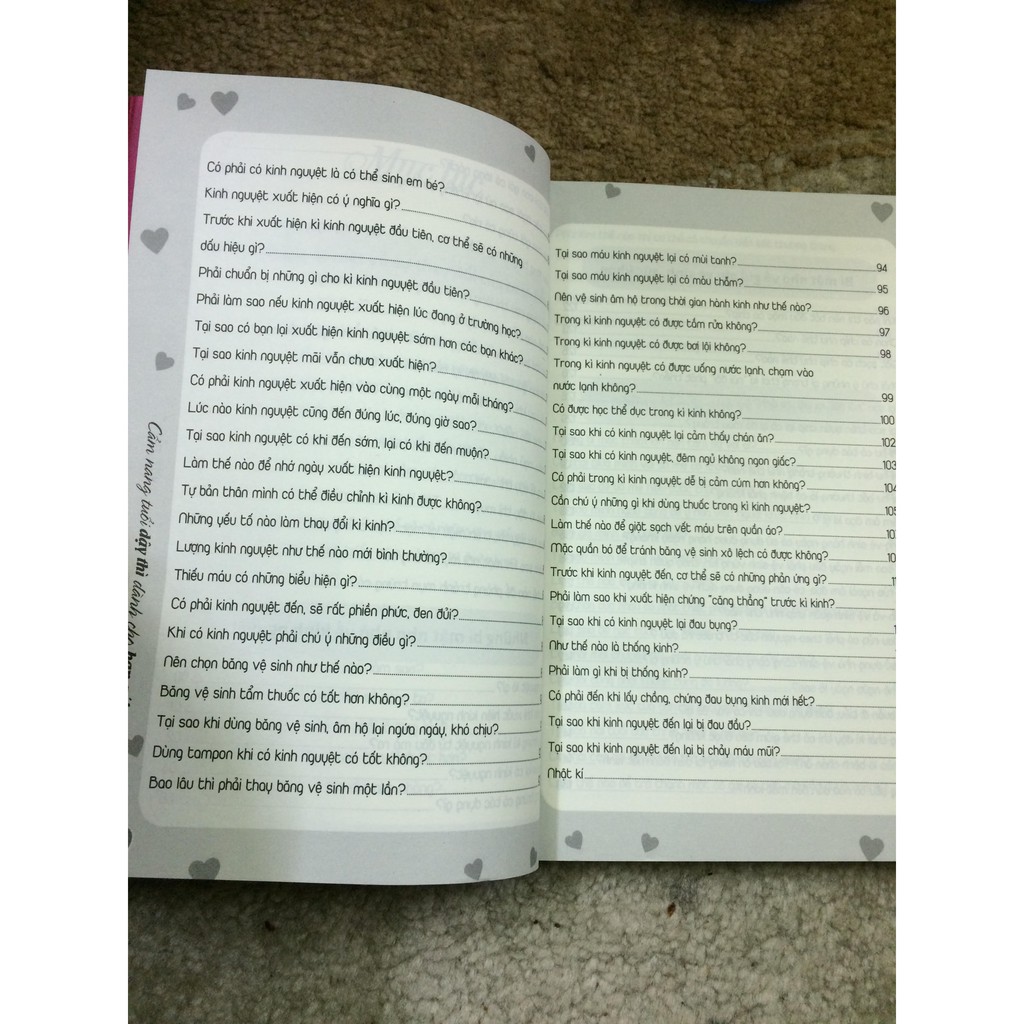 Có phải có kinh nguyệt là có thể sinh em bé?
Kinh nguyệt xuất hiện có ý nghĩa gì?
Trước khi xuất hiện kì kinh nguyệt đầu tiên, cơ thể sẽ có những
dấu hiệu gì?
Phải chuẩn bị những gì cho kì kinh nguyệt đầu tiên?
Phải làm sao nếu kinh nguyệt xuất hiện lúc đang ở trường học?
Tại sao có bạn lại xuất hiện kinh nguyệt sớm hơn các bạn khác?
Tại sao kinh nguyệt mãi vẫn chưa xuất hiện?
Có phải kinh nguyệt xuất hiện vào cùng một ngày mỗi tháng?
Lúc nào kinh nguyệt cũng đến đúng lúc, đúng giờ sao?
Tại sao kinh nguyệt có khi đến sớm, lại có khi đến muộn?
Làm thế nào để nhớ ngày xuất hiện kinh nguyệt?
Tự bản thân mình có thể điều chỉnh kì kinh được không?
Những yếu tố nào làm thay đổi kì kinh?
Lượng kinh nguyệt như thế nào mới bình thường?
Thiếu máu có những biểu hiện gì?
Có phải kinh nguyệt đến, sẽ rất phiền phức, đen đủi?
Khi có kinh nguyệt phải chú ý những điều gì?
Nên chọn băng vệ sinh như thế nào?
Băng vệ sinh tẩm thuốc có tốt hơn không?
Tại sao khi dùng băng vệ sinh, âm hộ lại ngứa ngáy, khó chịu?
Dùng tampon khi có kinh nguyệt có tốt không?
Bao lâu thì phải thay băng vệ sinh một lần?
Cẩm nang tuổi dậy thì dành cho
Tại sao máu kinh nguyệt lại có mùi tanh? 94
Tại sao máu kinh nguyệt lại có màu thẫm? 95
Nên vệ sinh âm hộ trong thời gian hành kinh như thế nào? 96
Trong kì kinh nguyệt có được tắm rửa không? 97
Trong kì kinh nguyệt có được bơi lội không? 98
Trong kì kinh nguyệt có được uống nước lạnh, chạm vào
nước lạnh không? 99
Có được học thể dục trong kì kinh không? 100
Tại sao khi có kinh nguyệt lại cảm thấy chán ăn? 102
Tại sao khi có kinh nguyệt, đêm ngủ không ngon giấc? 103
Có phải trong kì kinh nguyệt dễ bị cảm cúm hơn không? 104
Cần chú ý những gì khi dùng thuốc trong kì kinh nguyệt? 105
Làm thế nào để giặt sạch vết máu trên quần áo?
Mặc quần bó để tránh băng vệ sinh xô lệch có được không?
Trước khi kinh nguyệt đến, cơ thể sẽ có những phản ứng gì?
Phải làm sao khi xuất hiện chứng "căng thẳng" trước kì kinh?
Tại sao khi có kinh nguyệt lại đau bụng?
Như thế nào là thống kinh?
Phải làm gì khi bị thống kinh?
Có phải đến khi lấy chồng, chứng đau bụng kinh mới hết?
Tại sao khi kinh nguyệt đến lại bị đau đầu?
Tại sao khi kinh nguyệt đến lại bị chảy máu mũi?
Nhật kí